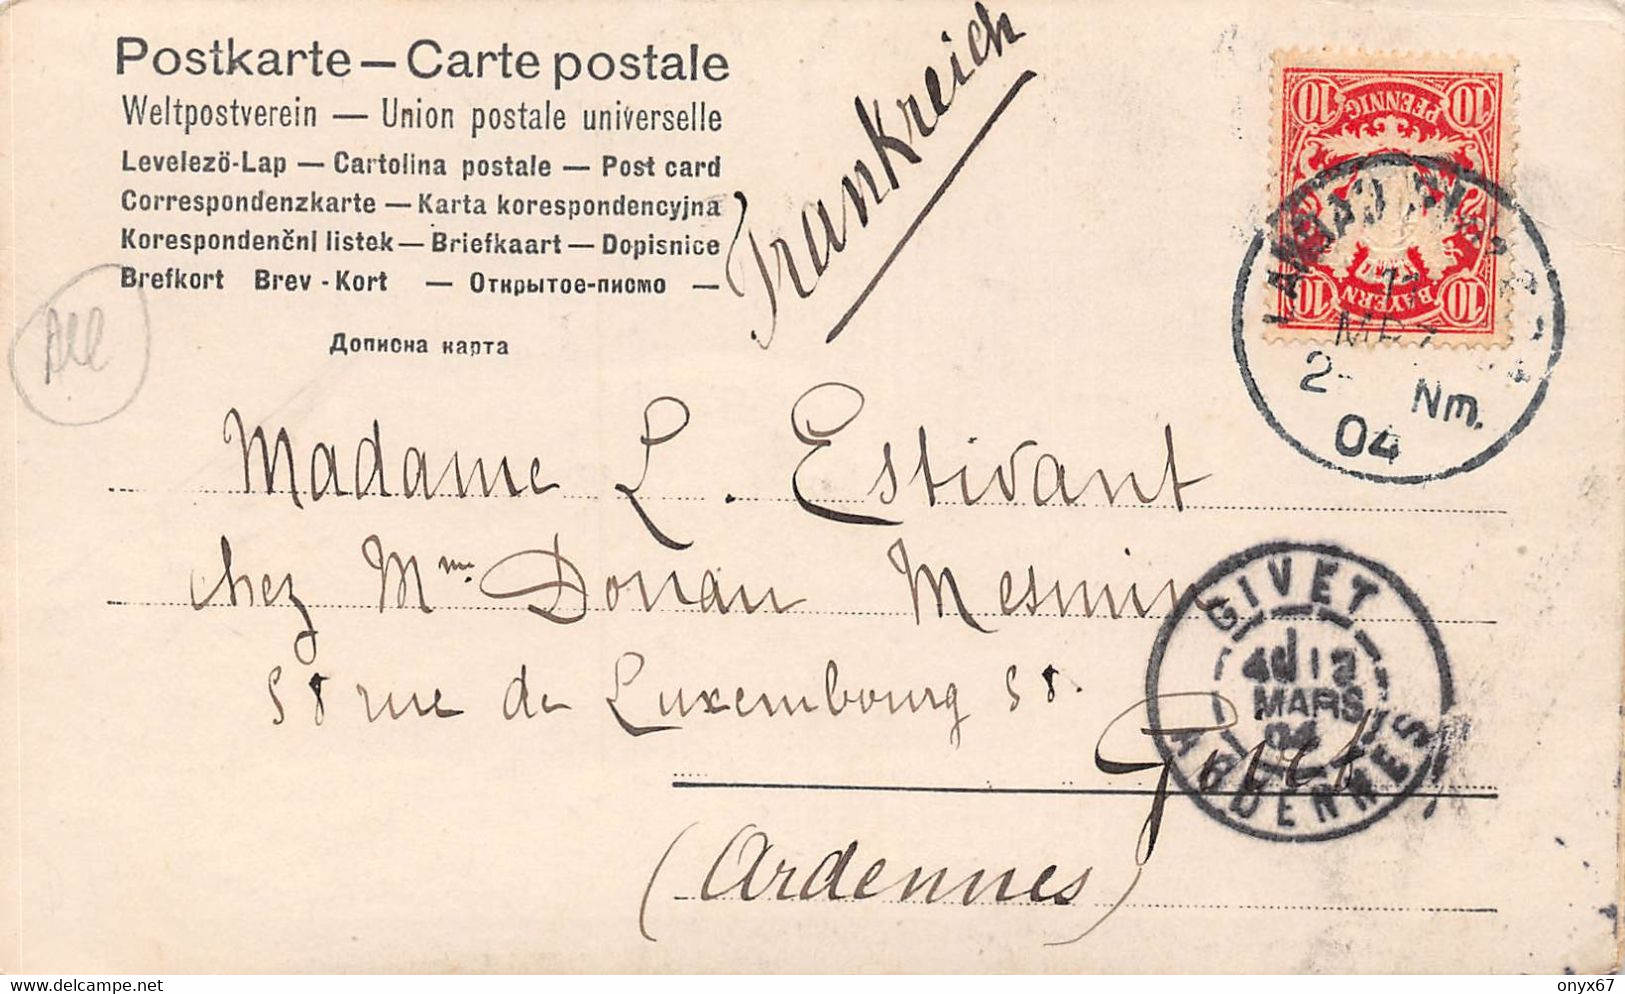 Postkarte — Carte postale
Weltpostverein — Union postale universelle
Levelezö-Lap — Cartolina postale — Post card
Correspondenzkarte — Karta korespondencyjna
Korespondenční listek — Briefkaart — Dopisnice
Brefkort Brev-Kort — Открытое-писмо —
Дописна карта
Frankreich
10 PFENNIG 10
10 BAYERN 10
MRZ
2- Nm.
04
All
Madame L. Estivant
chez Mme. Donau Mesmin
58 rue de Luxembourg 58.
Givet
(Ardennes)
GIVET
MARS
04
ARDENNES
delcampe.net
onyx67